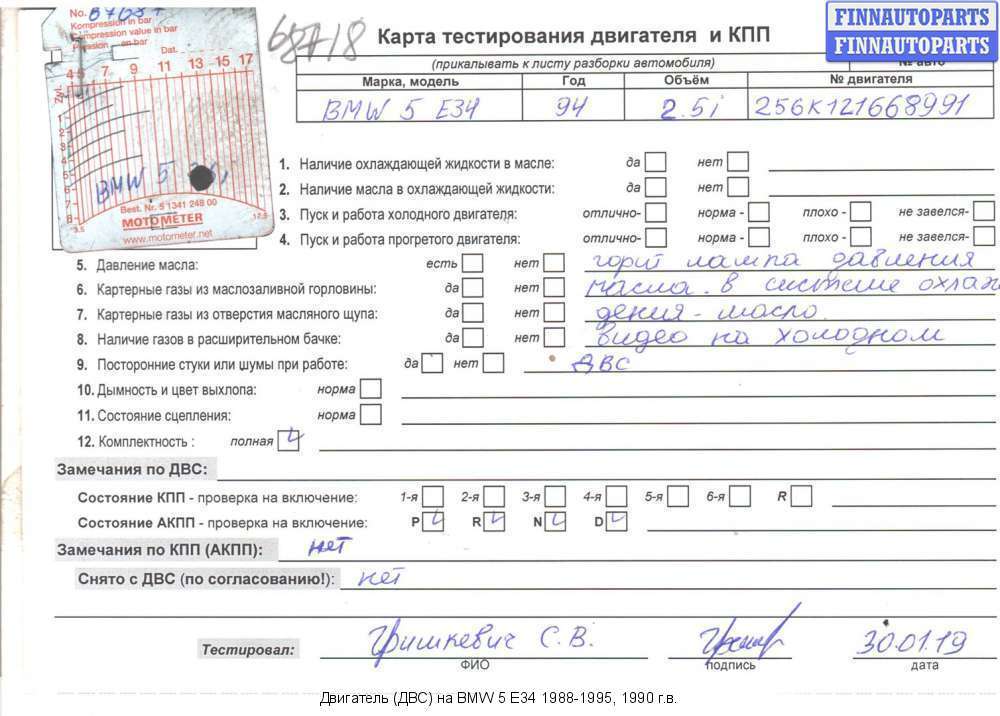 No. 
Kompression in bar
Compression value in bar
Pression en bar
Dat.
4 5 7 9 11 13 15 17
Zyl.
1
2
3
4
5
6
7
8
BMW 5
Best. Nr. 5 1341 248 00
MOTOMETER
3,5 12,5
www.motometer.net
68718
Карта тестирования двигателя и КПП
FINNAUTOPARTS
FINNAUTOPARTS
(прикалывать к листу разборки автомобиля) № авто
Марка, модель Год Объём № двигателя
BMW 5 E34 94 2.5i 256K121668991
1. Наличие охлаждающей жидкости в масле: да нет
2. Наличие масла в охлаждающей жидкости: да нет
3. Пуск и работа холодного двигателя: отлично- норма - плохо - не завелся-
4. Пуск и работа прогретого двигателя: отлично- норма - плохо - не завелся-
5. Давление масла: есть нет горит лампа давления
6. Картерные газы из маслозаливной горловины: да нет масла. в системе охлаж
7. Картерные газы из отверстия масляного щупа: да нет дения - масло.
8. Наличие газов в расширительном бачке: да нет видео на холодном
9. Посторонние стуки или шумы при работе: да нет ДВС
10. Дымность и цвет выхлопа: норма
11. Состояние сцепления: норма
12. Комплектность : полная
Замечания по ДВС:
Состояние КПП - проверка на включение: 1-я 2-я 3-я 4-я 5-я 6-я R
Состояние АКПП - проверка на включение: P R N D
Замечания по КПП (АКПП): нет
Снято с ДВС (по согласованию!): нет
Тестировал: Гришкевич С.В. 30.01.19
ФИО подпись дата
Двигатель (ДВС) на BMW 5 E34 1988-1995, 1990 г.в.